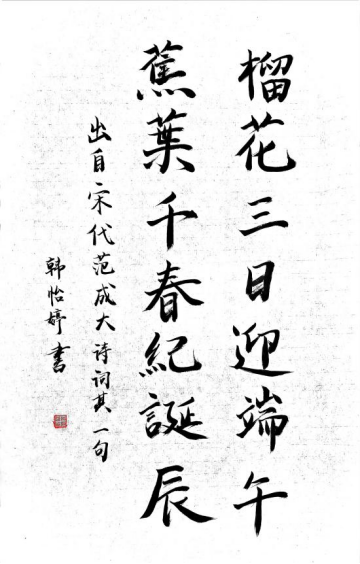 榴花三日迎端午
蕉葉千春紀誕辰
出自宋代范成大诗词其一句
韩怡婷书